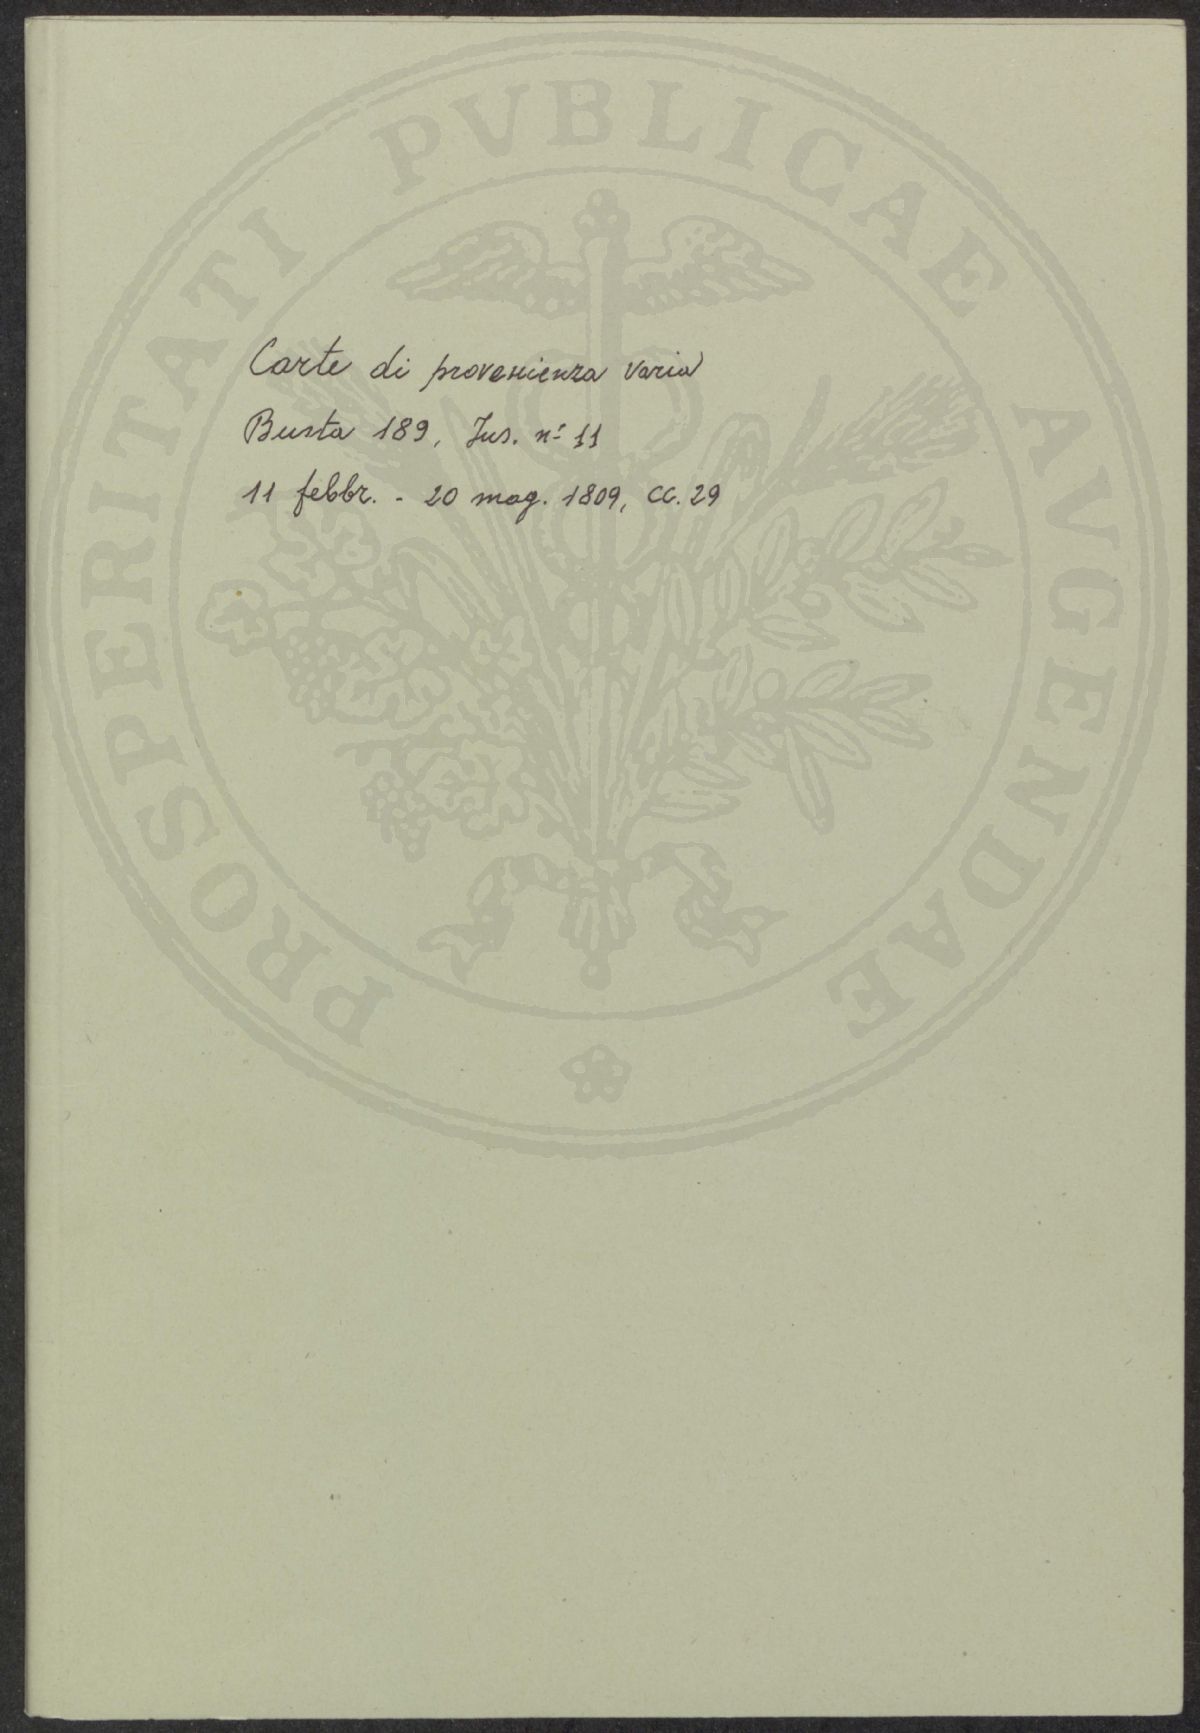 PROSPERITATI PVBLICAE AVGENDAE
Carte di provenienza varia
Busta 189, Ins. nº 11
11 febbr. - 20 mag. 1809, cc. 29